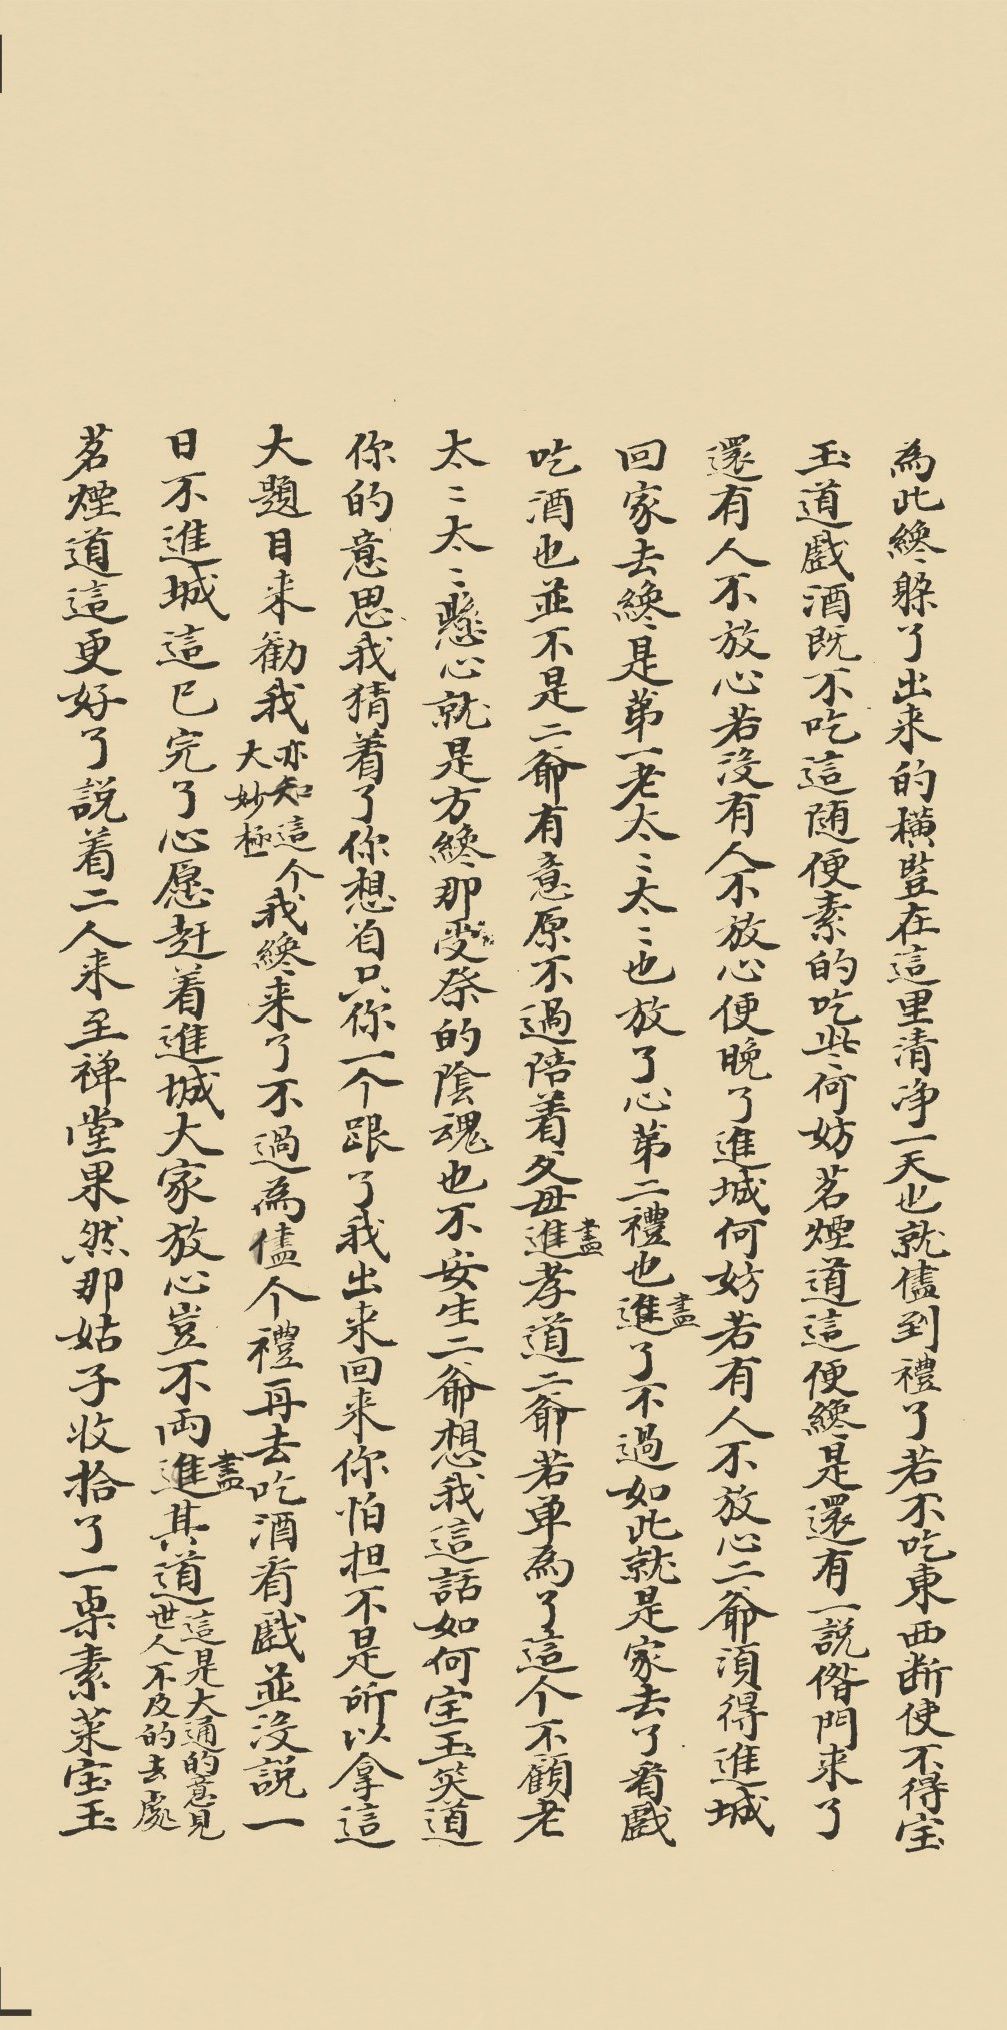 為此纔躲了出来的横豎在這里清净一天也就儘到禮了若不吃東西断使不得宝
玉道戲酒既不吃這随便素的吃些何妨茗煙道這便纔是還有一說偺門来了
還有人不放心若没有人不放心便晚了進城何妨若有人不放心二爺須得進城
回家去纔是苐一老太〻太〻也放了心苐二禮也進盡了不過如此就是家去了看戲
吃酒也並不是二爺有意原不過陪着父母進盡孝道二爺若单為了這个不顧老
太〻太〻懸心就是方纔那受祭的陰魂也不安生二爺想我這話如何宝玉笑道
你的意思我猜着了你想着只你一个跟了我出来回来你怕担不是所以拿這
大題目来勸我亦知這个大妙極我纔来了不過為儘个禮再去吃酒看戲並没說一
日不進城這已完了心愿赶着進城大家放心豈不両進盡其道這是大通的意見世人不及的去處
茗煙道這更好了說着二人来至禅堂果然那姑子收拾了一桌素菜宝玉